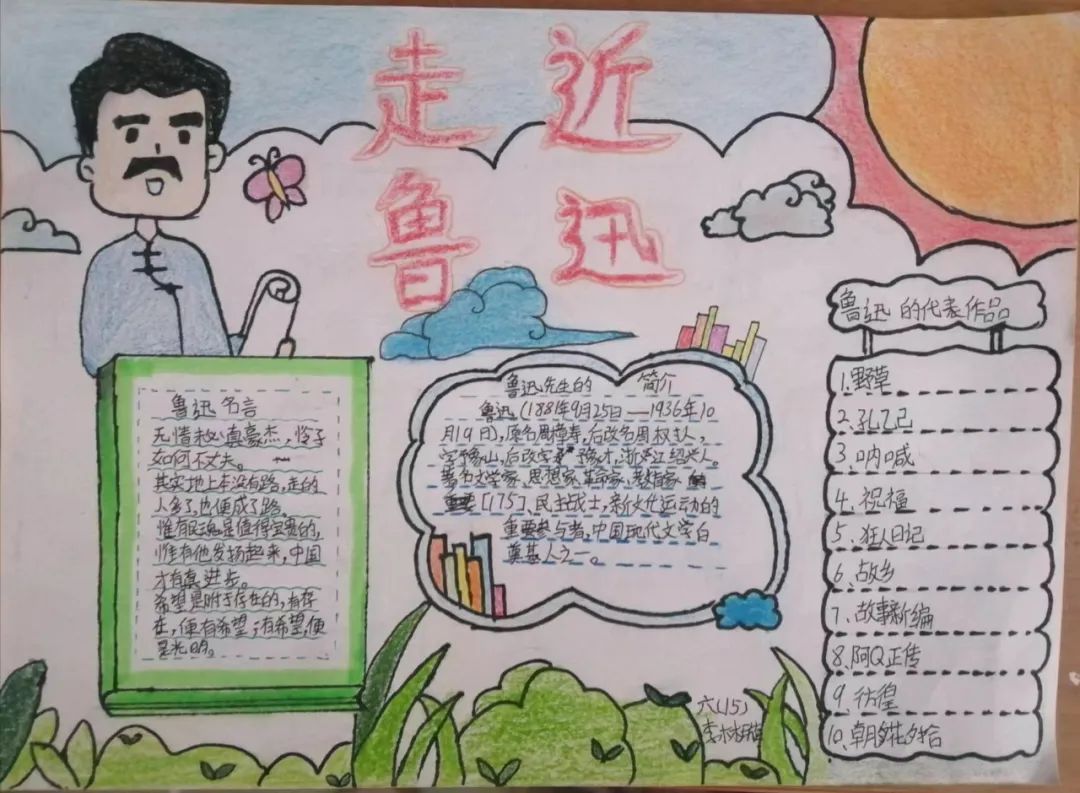 走近
鲁迅
鲁迅名言
无情未必真豪杰,怜子
如何不丈夫。
其实地上本没有路,走的
人多了,也便成了路。
惟有民魂是值得宝贵的,
惟有他发扬起来,中国
才有真进步。
希望是附于存在的,有存
在,便有希望;有希望,便
是光明。
鲁迅先生的 简介
鲁迅(1881年9月25日——1936年10
月19日),原名周樟寿,后改名周树人,
字豫山,后改字豫才,浙江绍兴人。
著名文学家、思想家、革命家、教育家
[175]、民主战士,新文化运动的
重要参与者,中国现代文学的
奠基人之一。
鲁迅的代表作品
1.野草
2.孔乙己
3.呐喊
4.祝福
5.狂人日记
6.故乡
7.故事新编
8.阿Q正传
9.彷徨
10.朝花夕拾
六(15)